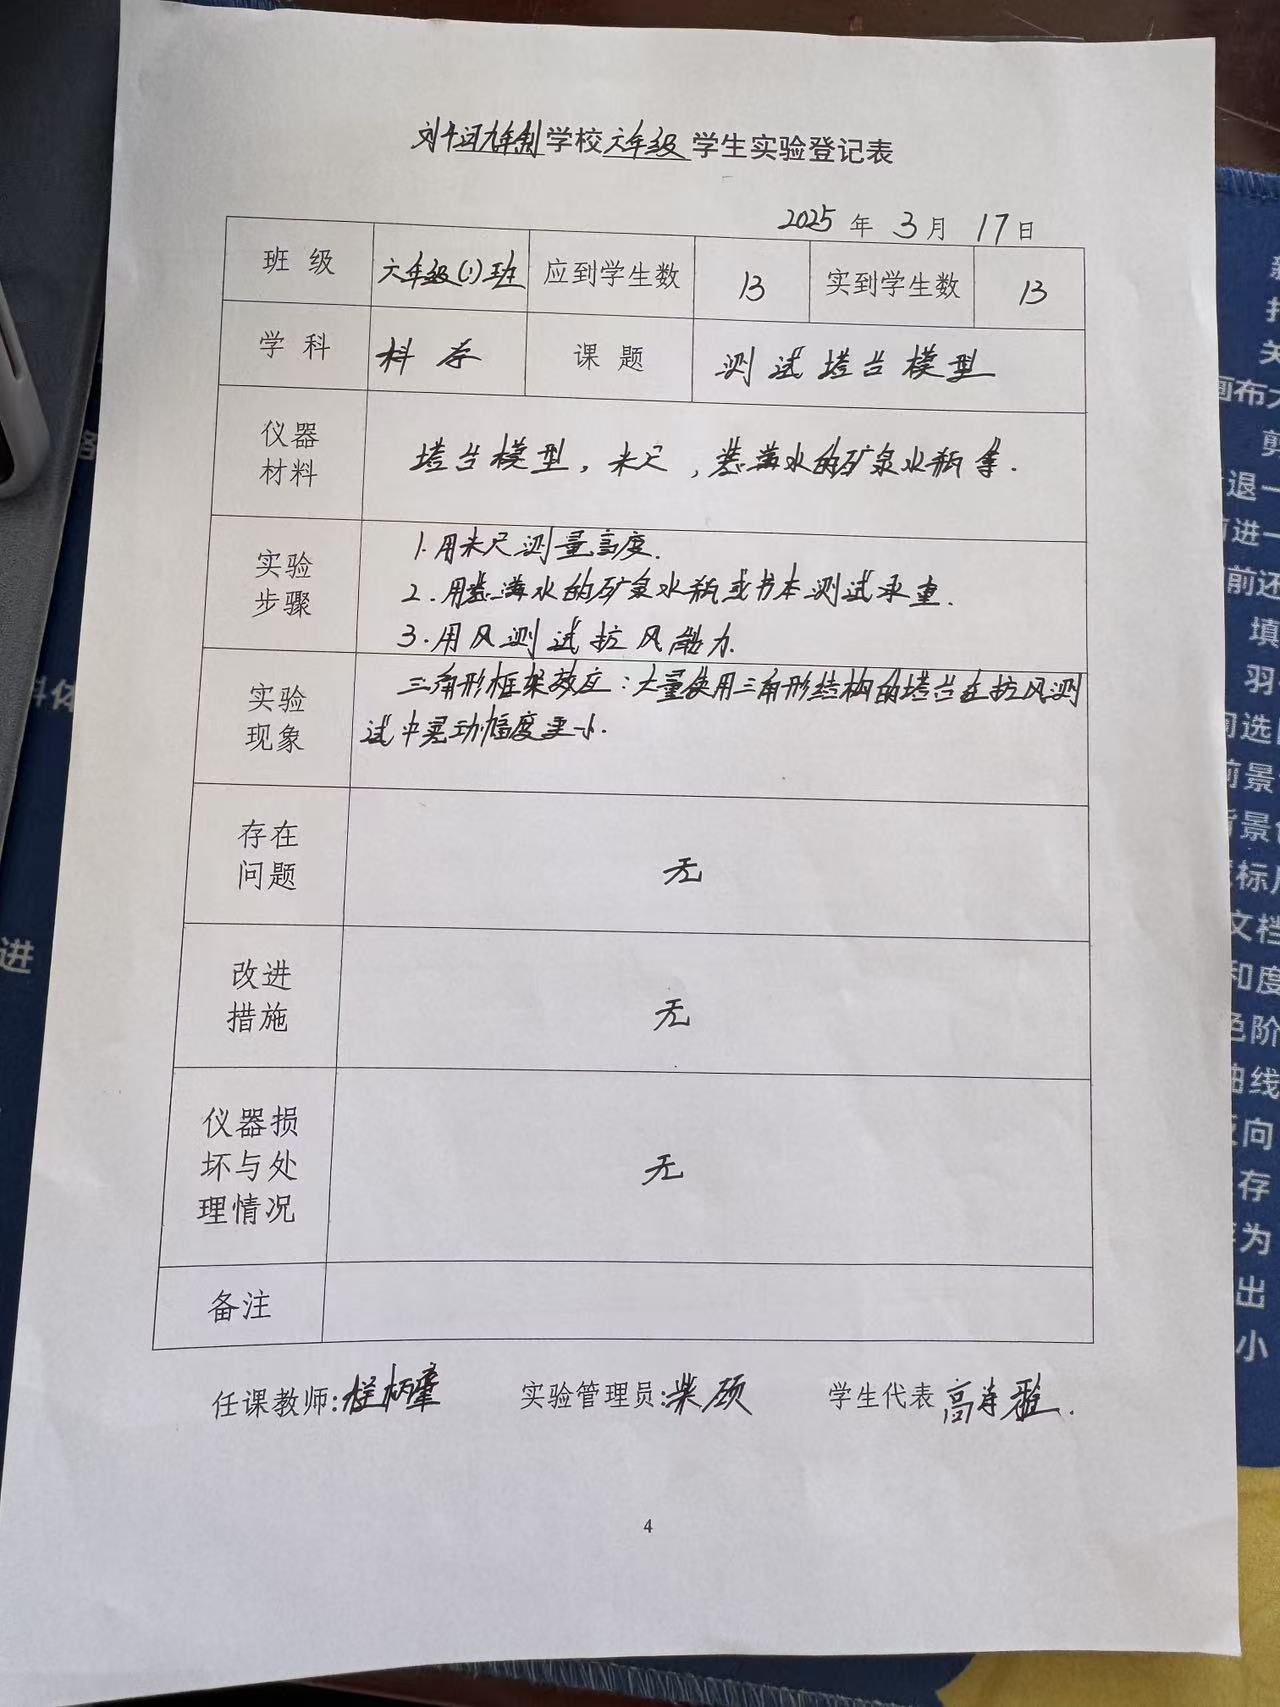 九年制学校六年级学生实验登记表
2025年3月17日
班级 六年级(1)班 应到学生数 13 实到学生数 13
学科 科学 课题 测试塔台模型
仪器
材料
塔台模型，米尺，装满水的矿泉水瓶等.
实验
步骤
1.用米尺测量高度.
2.用装满水的矿泉水瓶或书本测试承重.
3.用风测试抗风能力.
实验
现象
三角形框架效应：大量使用三角形结构的塔台在抗风测
试中晃动幅度更小.
存在
问题
无
改进
措施
无
仪器损
坏与处
理情况
无
备注
任课教师: 实验管理员:柴硕 学生代表高
4
进
画布
退一
进一
前还
填
羽
选
前景
背景
标
文档
和度
色阶
曲线
反向
存
为
出
小